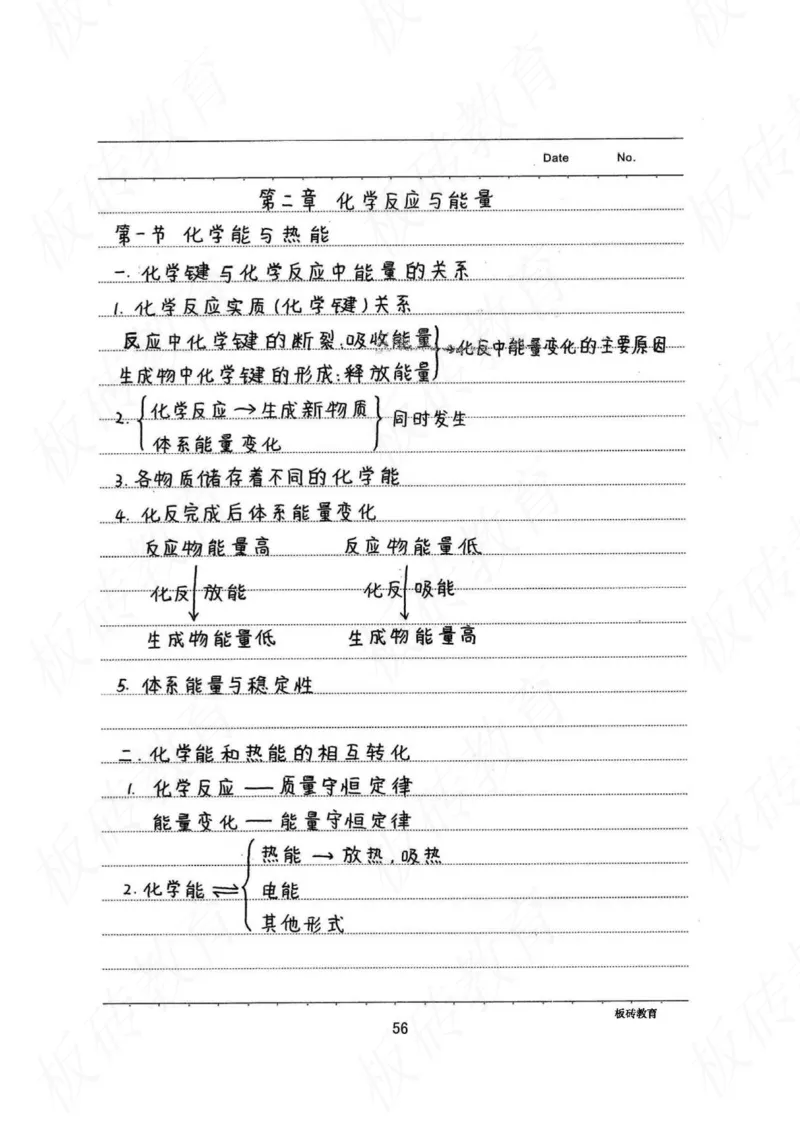 Date No.
第二章 化学反应与能量
第一节 化学能与热能
一. 化学键与化学反应中能量的关系
1. 化学反应实质(化学键)关系
反应中化学键的断裂:吸收能量
生成物中化学键的形成:释放能量
→化反中能量变化的主要原因
2. 化学反应→生成新物质
体系能量变化
同时发生
3. 各物质储存着不同的化学能
4. 化反完成后体系能量变化
反应物能量高 反应物能量低
化反 放能 化反 吸能
生成物能量低 生成物能量高
5. 体系能量与稳定性
二. 化学能和热能的相互转化
1. 化学反应 — 质量守恒定律
能量变化 — 能量守恒定律
热能 → 放热,吸热
2. 化学能 ⇌ 电能
其他形式
板砖教育
56